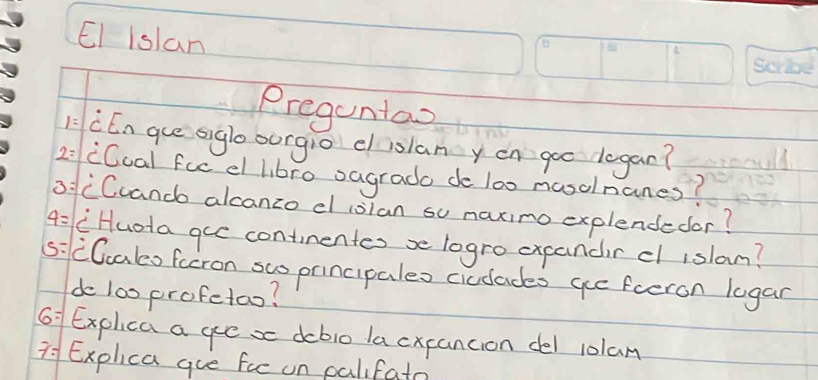 El Islan
Scribe
Preguntas
1= ¿En que siglo surgio el islam y en que lugar?
2= ¿Cual fue el libro sagrado de los musulmanes?
3= ¿Cuando alcanzo el islan su maximo explendedor?
4= ¿Husta que continentes se logro expandir el islam?
5= ¿Cuales fueron sus principales ciudades que fueron lugar
de los profetas?
6= Explica a que se debio la expancion del islam
7= Explica que fue un palifato